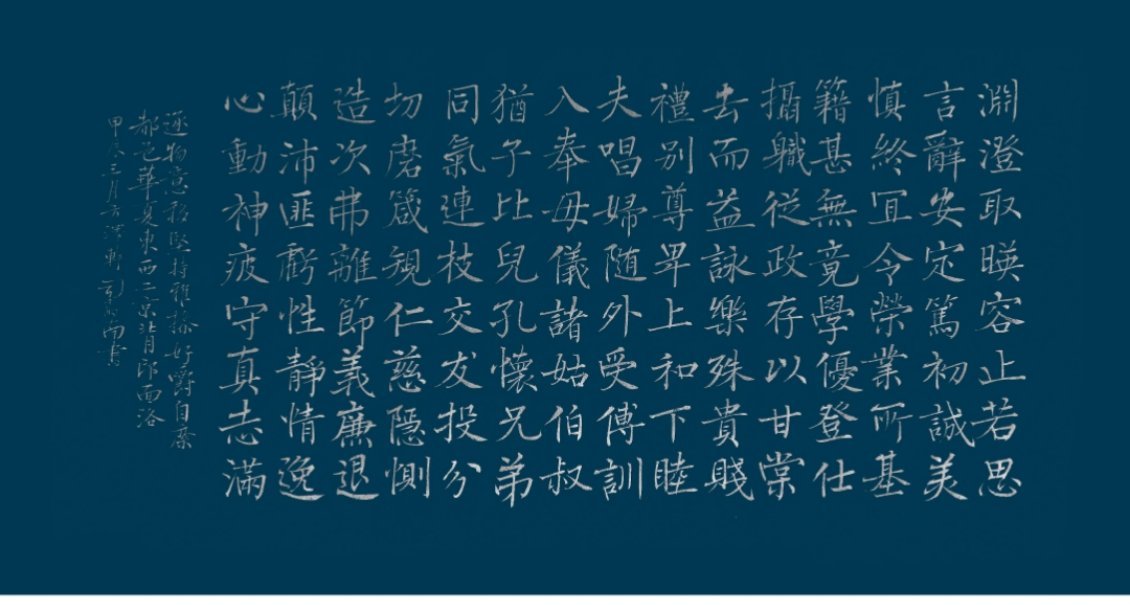 淵澄取暎容止若思
言辭安定篤初誠美
慎終宜令榮業所基
籍甚無竟學優登仕
攝職從政存以甘棠
去而益詠樂殊貴賤
禮別尊卑上和下睦
夫唱婦随外受傅訓
入奉母儀諸姑伯叔
猶子比兒孔懷兄弟
同氣連枝交友投分
切磨箴規仁慈隱惻
造次弗離節義廉退
顛沛匪虧性靜情逸
心動神疲守真志滿
逐物意移堅持雅操好爵自縻
都邑華夏東西二京背邙面洛
甲辰三月軒雨書